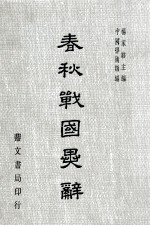 楊家駱主編
中國學術類編
春秋戰國異辭
鼎文書局印行